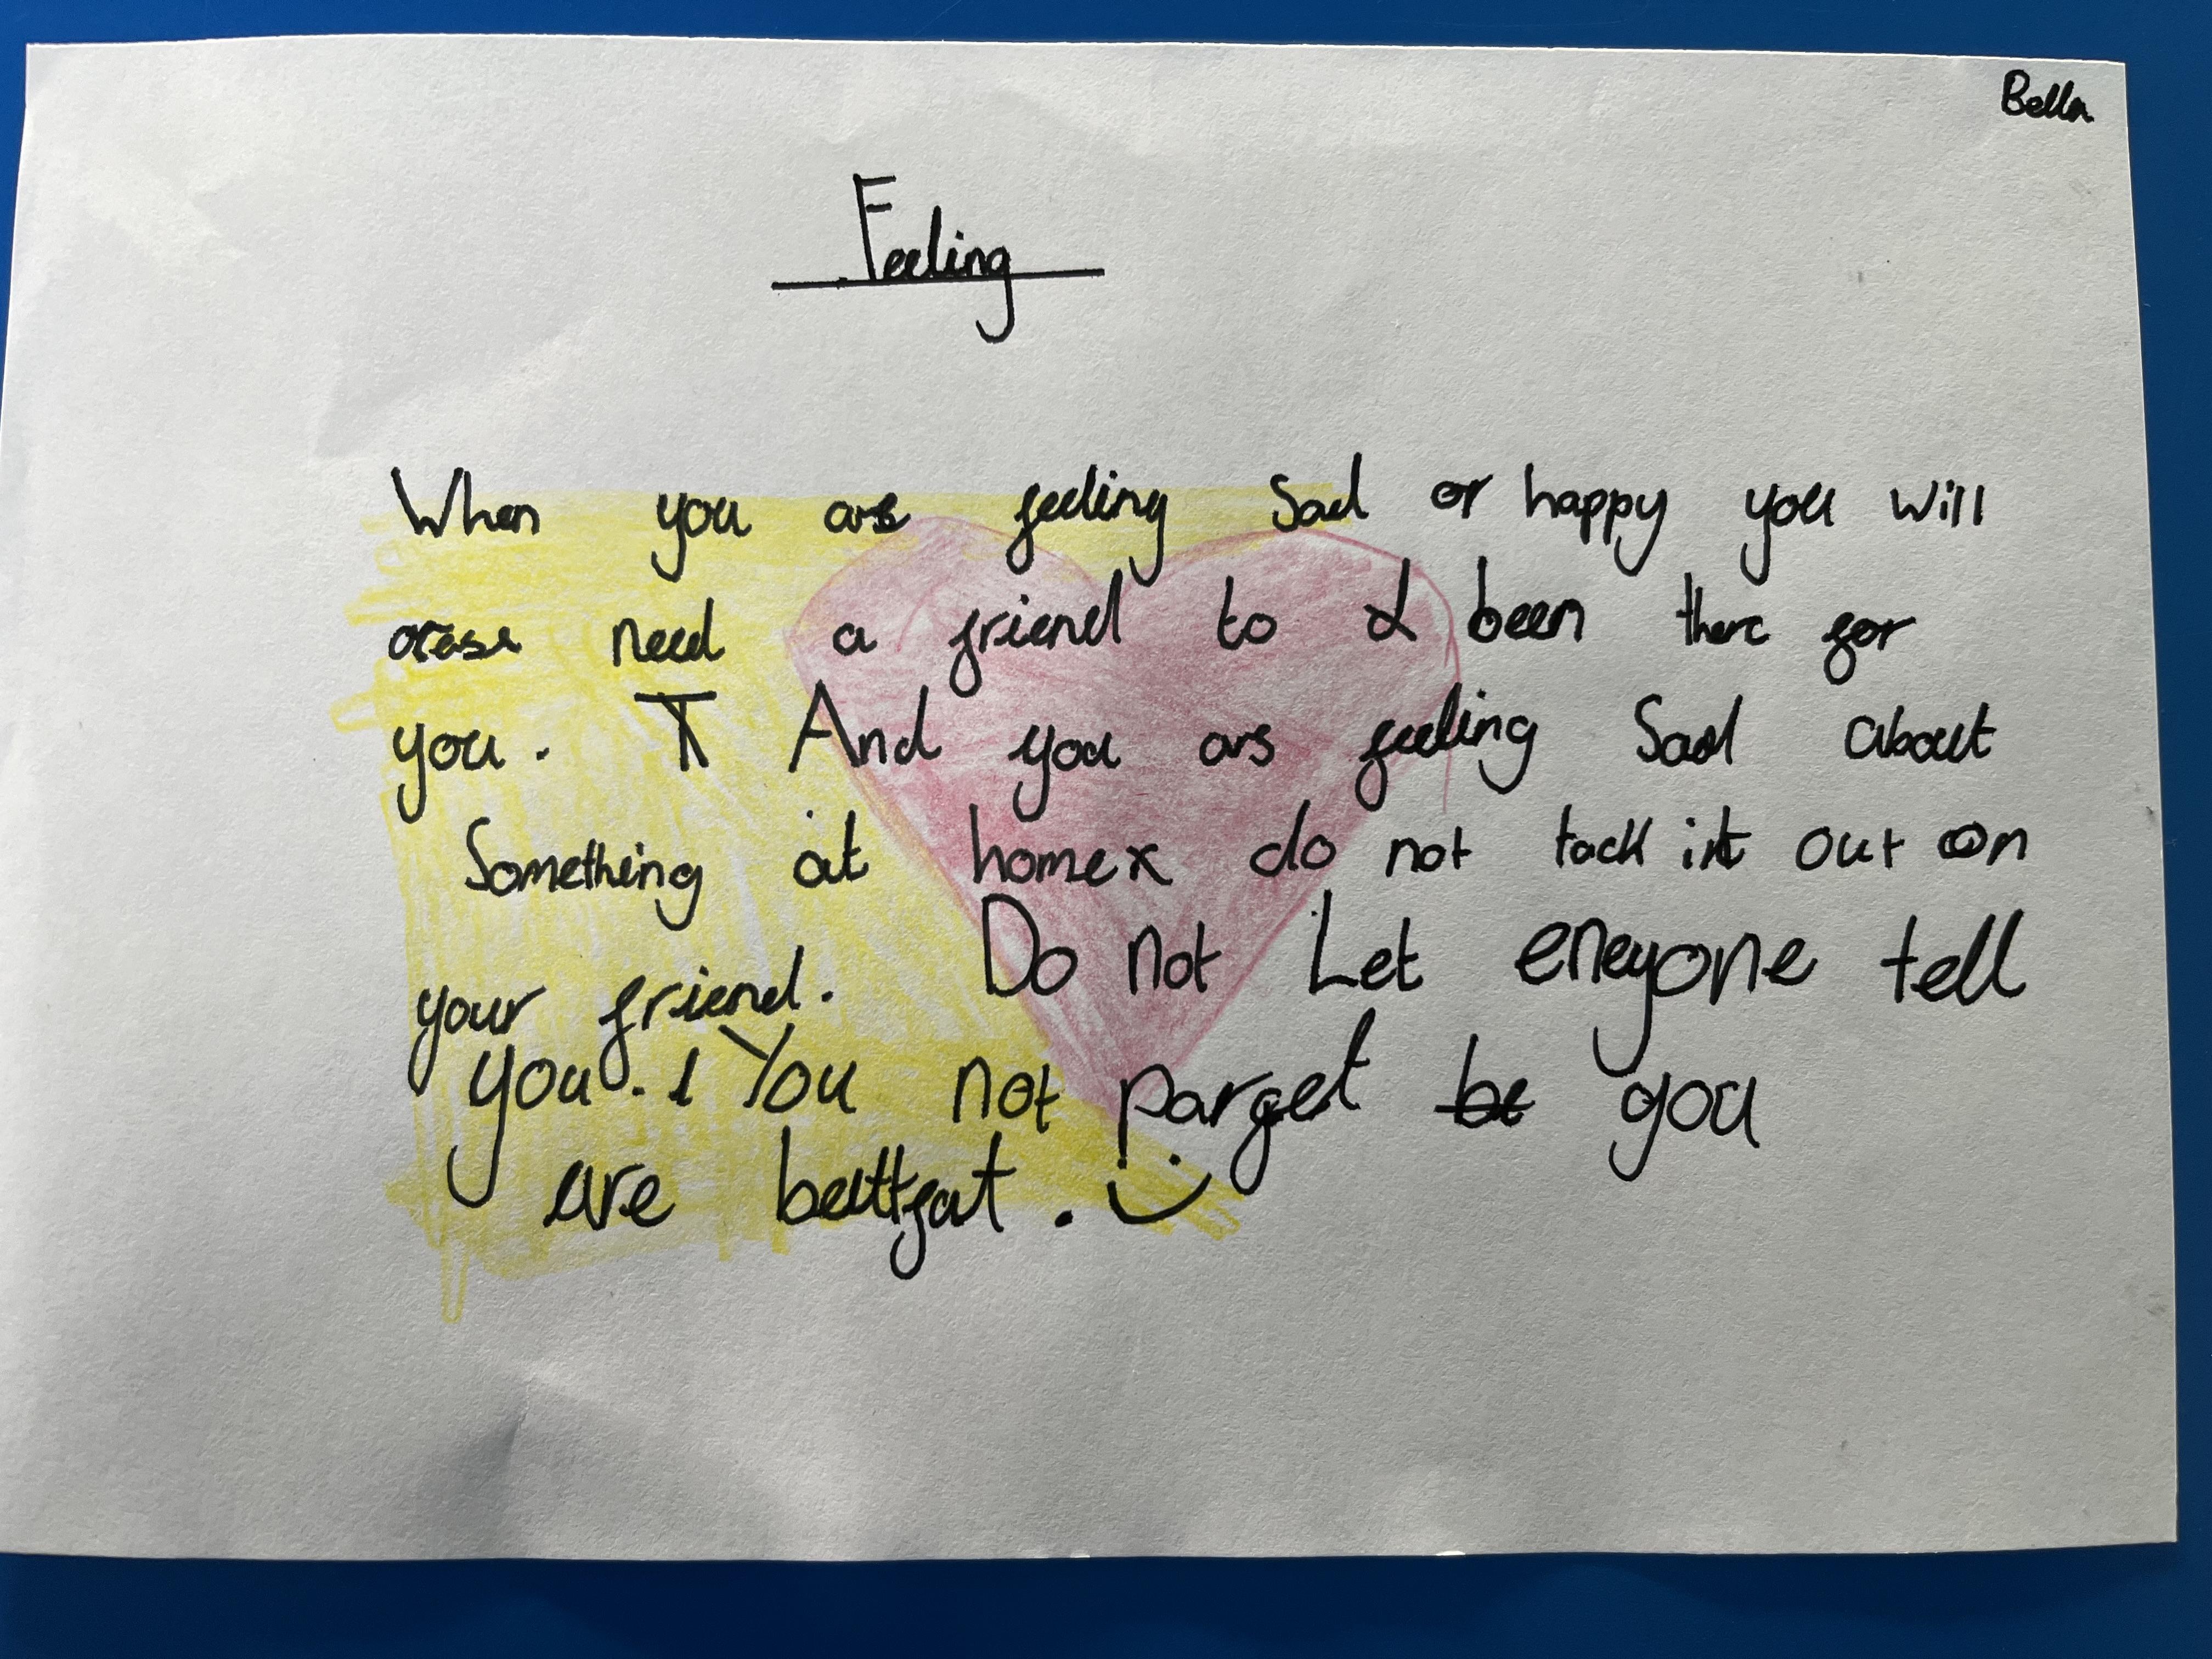 Bella
Feeling
When you are feeling Sad or happy you will
need a friend to been there for
you. And you ars feeling Sad about
Something at home do not tack it out on
your friend. Do not Let eneyone tell
you. You not parget be you
are beattfat.